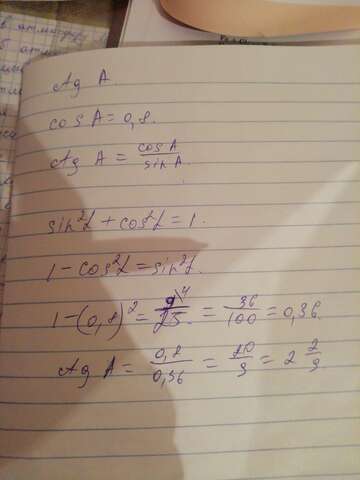 tg A.
cos A = 0,8.
tg A = cosA / sin A.
sin²α + cos²α = 1.
1 - cos²α = sin²α.
1 - (0,8)² = 9\4 / 25 = 36 / 100 = 0,36.
tg A = 0,8 / 0,36 = 20 / 9 = 2 2/9